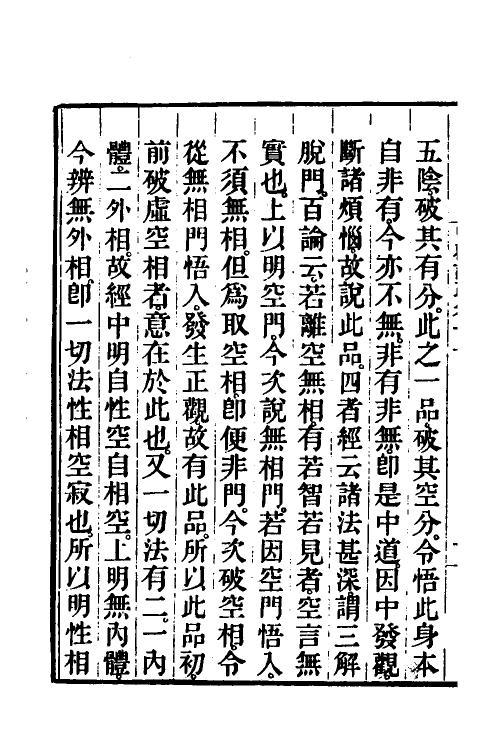 五陰。破其有分。此之一品。破其空分。令悟此身本
自非有。今亦不無。非有非無。卽是中道。因中發觀。
斷諸煩惱。故說此品。四者經云諸法甚深。謂三解
脫門。百論云。若離空無相。有若智若見者。空言無
實也。上以明空門。今次說無相門。若因空門悟入。
不須無相。但爲取空相。卽便非門。今次破空相。令
從無相門悟入。發生正觀。故有此品。所以此品初。
前破虛空相者。意在於此也。又一切法有二。一內
體。二外相。故經中明自性空自相空。上明無內體。
今辨無外相。卽一切法性相空寂也。所以明性相